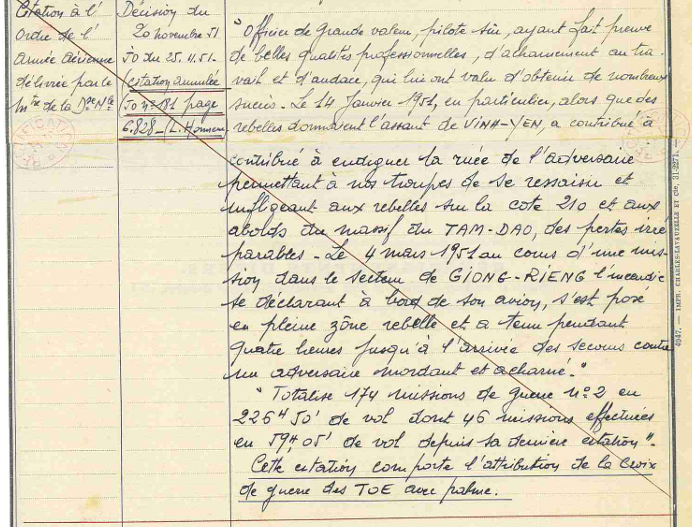 Citation à l'
Ordre de l'
Armée Aérienne
délivrée par le
Mtre de la Dse Nle
Décision du
20 novembre 51
JO du 25.11.51.
(citation annulée
JO nº 181 page
6.828 - (L. Honneur
"Officier de grande valeur, pilote sûr, ayant fait preuve
de belles qualités professionnelles, d'acharnement au tra-
vail et d'audace, qui lui ont valu d'obtenir de nombreux
succès - Le 14 Janvier 1951, en particulier, alors que des
rebelles donnaient l'assaut de VINH-YEN, a contribué à
contribué à endiguer la ruée de l'adversaire
permettant à nos troupes de se ressaisir et
infligeant aux rebelles sur la côte 210 et aux
abords du massif du TAM-DAO, des pertes irré
parables - Le 4 mars 1951 au cours d'une mis-
sion dans le secteur de GIONG-RIENG l'incendie
se déclarant à bord de son avion, s'est posé
en pleine zône rebelle et a tenu pendant
quatre heures jusqu'à l'arrivée des secours contre
un adversaire mordant et acharné."
"Totalise 174 missions de guerre nº 2 en
226H50' de vol dont 46 missions effectuées
en 59H05' de vol depuis sa dernière citation".
Cette citation comporte l'attribution de la Croix
de guerre des TOE avec palme.
4947. — IMPR. CHARLES-LAVAUZELLE ET Cie, 31-2271. —